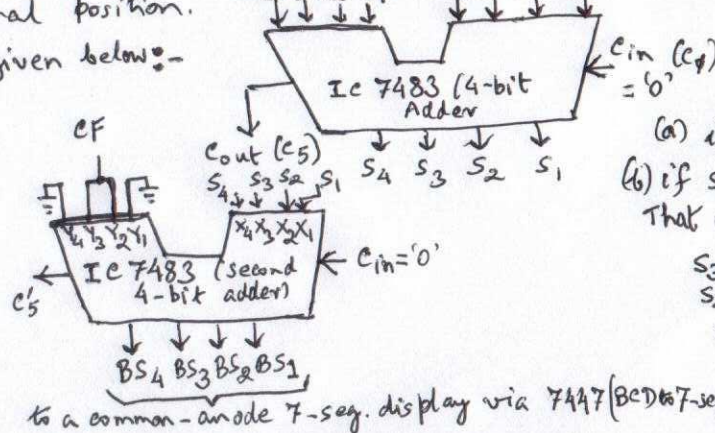 nal position.
given below:-
IC 7483 (4-bit
Adder
Cin (C4)
= '0'
Cout (C5)
S4 S3 S2 S1
(a)
(b) if s
That
S3
CF
S4 S3 S2 S1
Y4 Y3 Y2 Y1
X4 X3 X2 X1
IC 7483 (second
4-bit adder)
Cin='0'
C'5
BS4 BS3 BS2 BS1
to a common-anode 7-seg. display via 7447 (BCD to 7-se